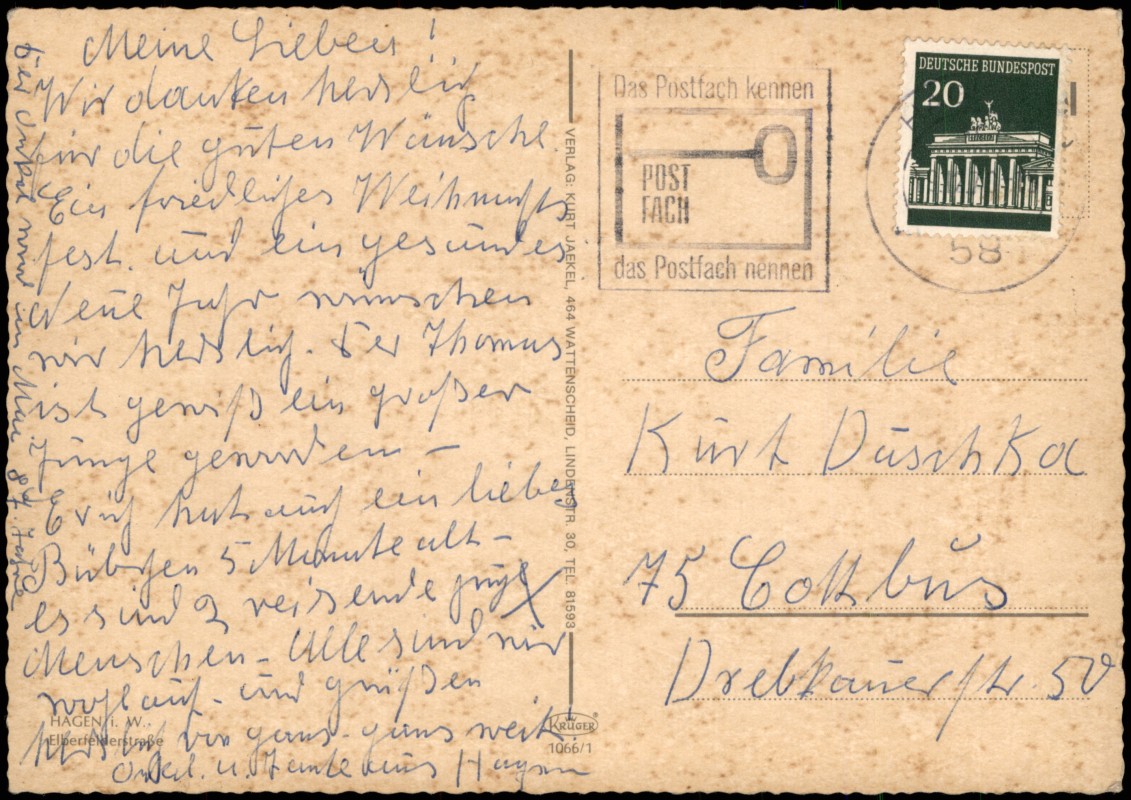 Meine Lieben!
Wir danken herzlich
für die guten Wünsche.
Ein friedliches Weihnachts
fest. und ein gesundes
Neue Jahr wünschen
wir herzlich. Der Thomas
ist gewiß ein großer
Junge geworden –
Erich hat auch ein liebes
Bübchen 5 Monate alt –
es sind 2 reizende junge
Menschen – Alle sind wir
wohlauf – und grüßen
herzlich von ganz – ganz weit
Onkel. u. Tante aus Hagen
Der Onkel wird im Mai 84. Jahre
HAGEN i. W.
Elberfelderstraße
VERLAG: KURT JAEKEL, 464 WATTENSCHEID, LINDENSTR. 30, TEL. 81593
KRÜGER
1066/1
Das Postfach kennen
POST
FACH
das Postfach nennen
DEUTSCHE BUNDESPOST
20
58
Familie
Kurt Duschka
75 Cottbus
Drebkauerstr. 50